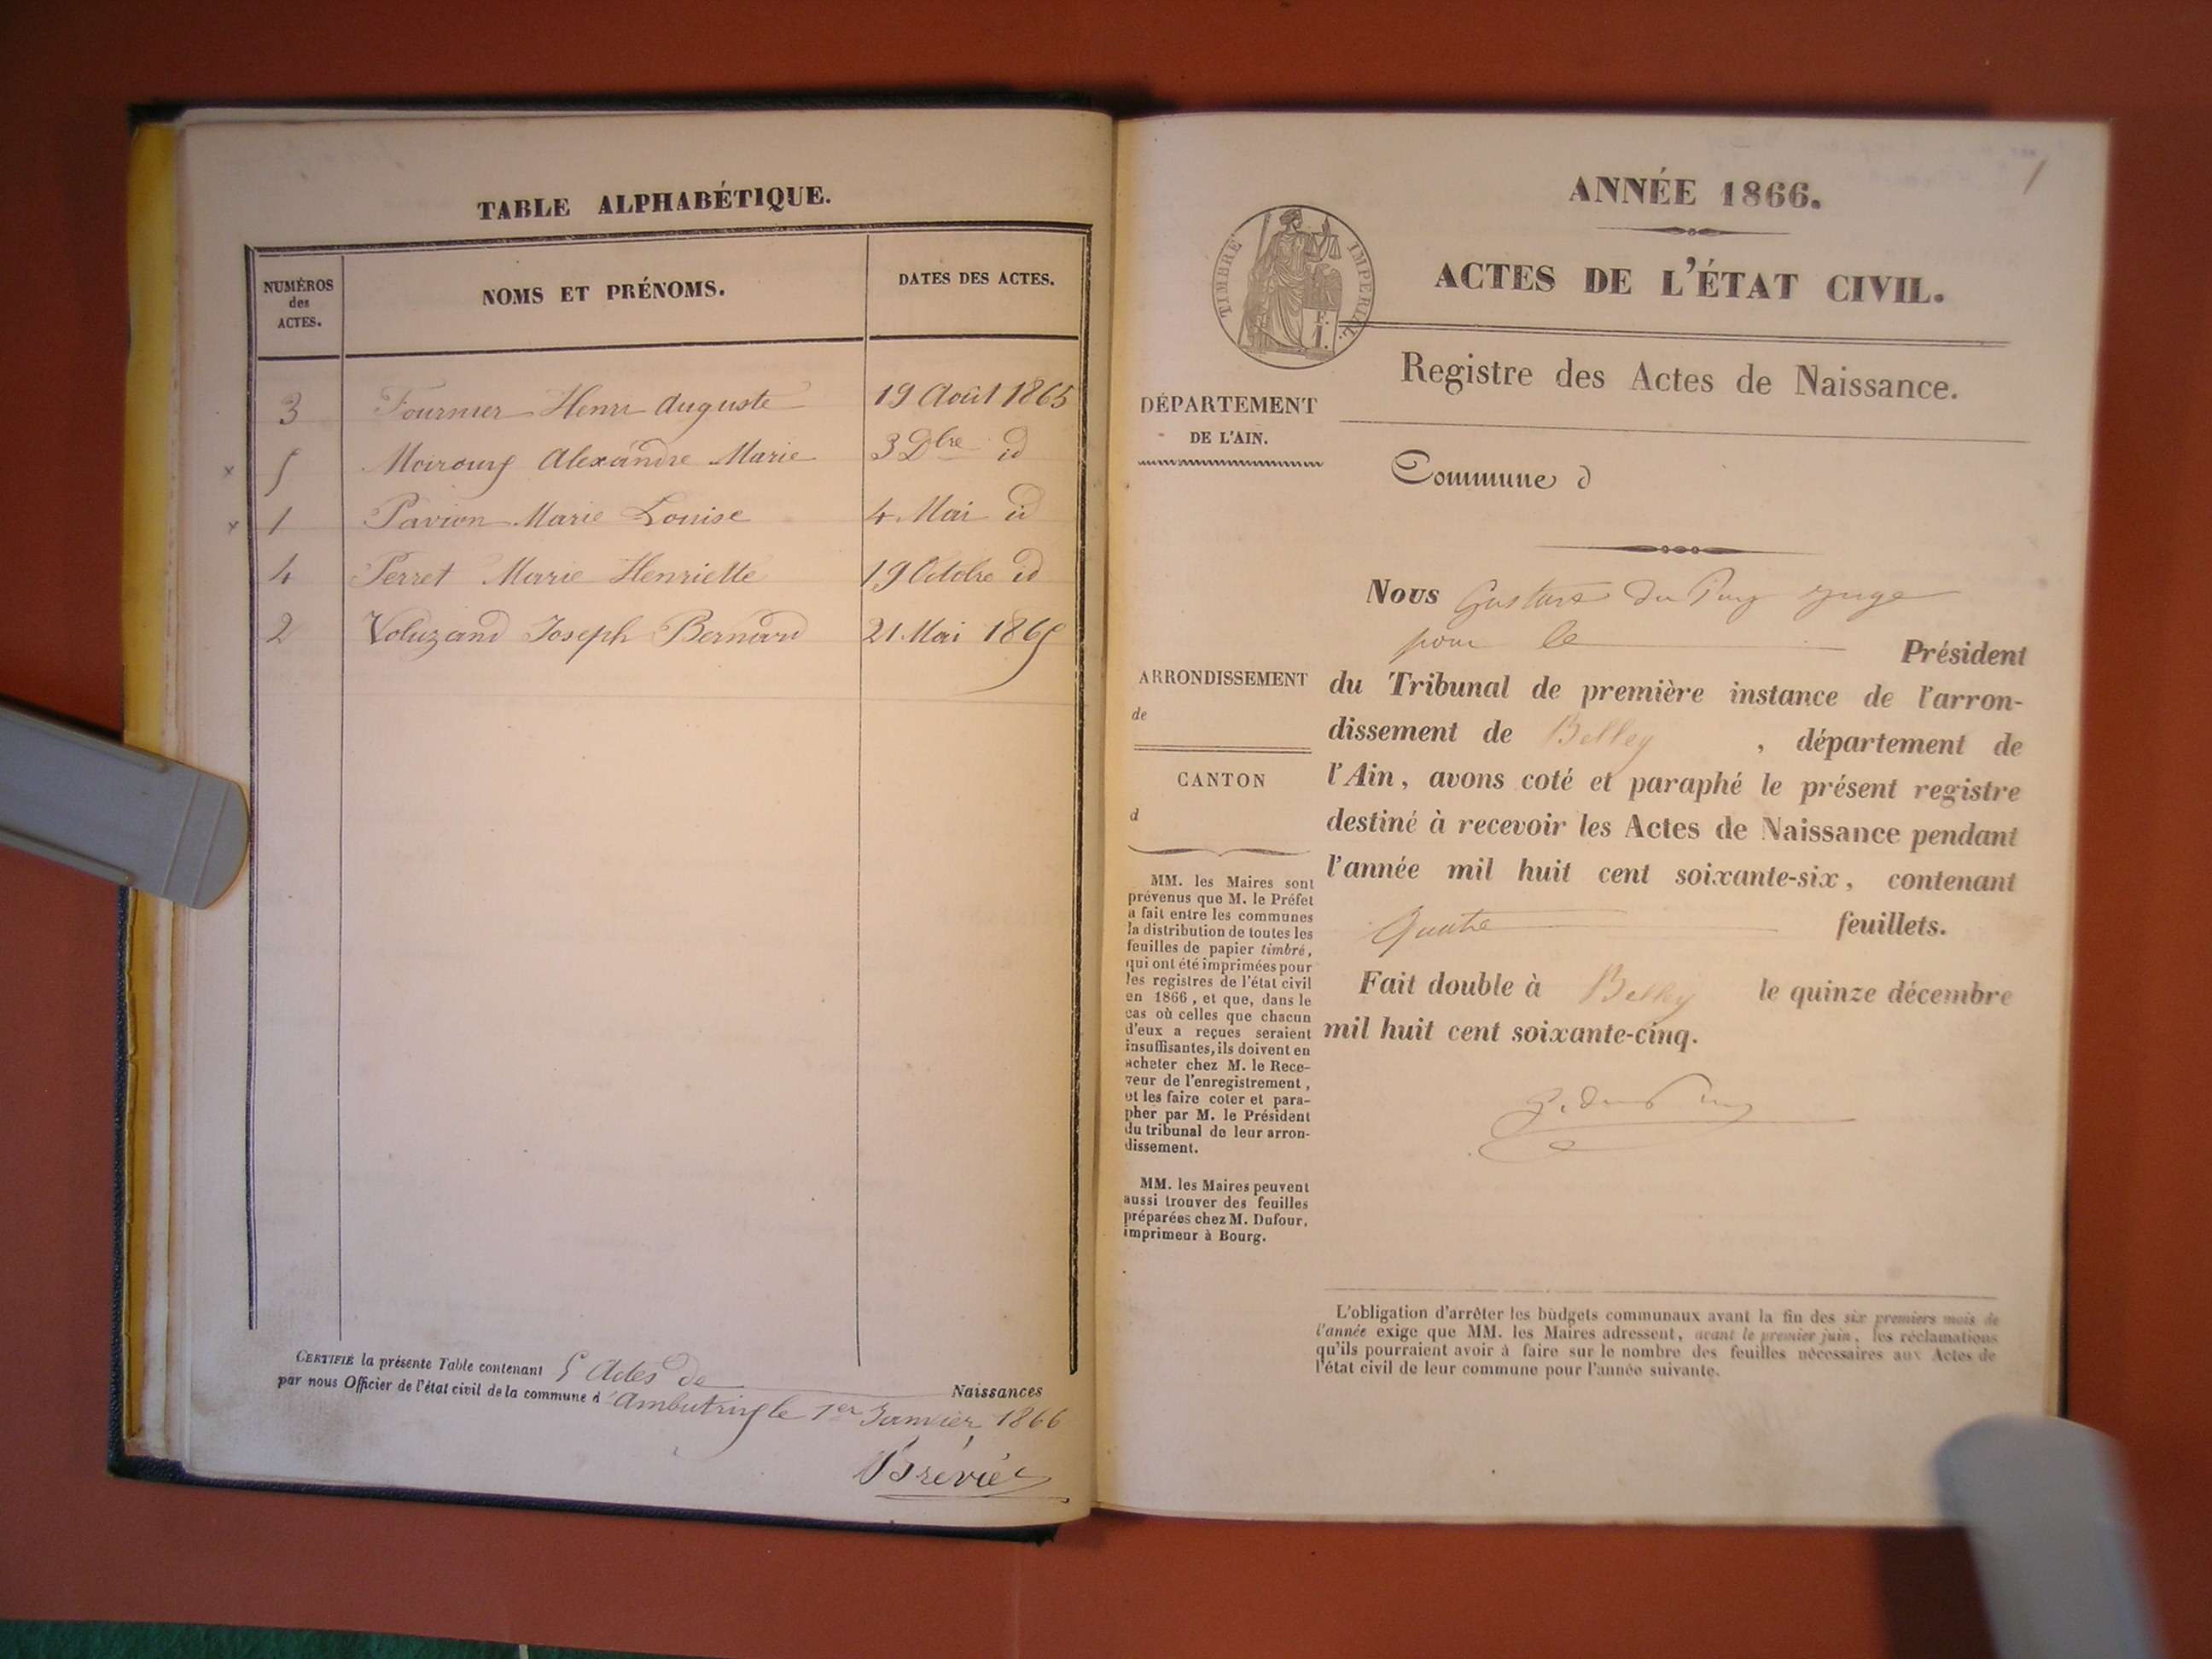 TABLE ALPHABÉTIQUE.
NUMÉROS
des
ACTES.
NOMS ET PRÉNOMS.
DATES DES ACTES.
3 Fournier Henri Auguste 19 Août 1865
x 5 Alexandre Marie 3 Dbre id
x 1 Pavion Marie Louise 4 Mai id
4 Perret Marie Henriette 19 Octobre id
2 Voluzand Joseph Bernard 21 Mai 1865
CERTIFIÉ la présente Table contenant 5 Actes de Naissances
par nous Officier de l'état civil de la commune d'Ambutrix le 1er Janvier 1866
1
ANNÉE 1866.
TIMBRE IMPÉRIAL.
ACTES DE L'ÉTAT CIVIL.
Registre des Actes de Naissance.
DÉPARTEMENT
DE L'AIN.
Commune d
Nous Gustave du Puy juge
pour le Président
ARRONDISSEMENT
de
CANTON
d
du Tribunal de première instance de l'arron-
dissement de Belley , département de
l'Ain, avons coté et paraphé le présent registre
destiné à recevoir les Actes de Naissance pendant
l'année mil huit cent soixante-six, contenant
Quatre feuillets.
Fait double à Belley le quinze décembre
mil huit cent soixante-cinq.
G. du Puy
MM. les Maires sont
prévenus que M. le Préfet
a fait entre les communes
la distribution de toutes les
feuilles de papier timbré,
qui ont été imprimées pour
les registres de l'état civil
en 1866, et que, dans le
cas où celles que chacun
d'eux a reçues seraient
insuffisantes, ils doivent en
acheter chez M. le Rece-
veur de l'enregistrement,
et les faire coter et para-
pher par M. le Président
du tribunal de leur arron-
dissement.
MM. les Maires peuvent
aussi trouver des feuilles
préparées chez M. Dufour,
imprimeur à Bourg.
L'obligation d'arrêter les budgets communaux avant la fin des six premiers mois de
l'année exige que MM. les Maires adressent, avant le premier juin, les réclamations
qu'ils pourraient avoir à faire sur le nombre des feuilles nécessaires aux Actes de
l'état civil de leur commune pour l'année suivante.